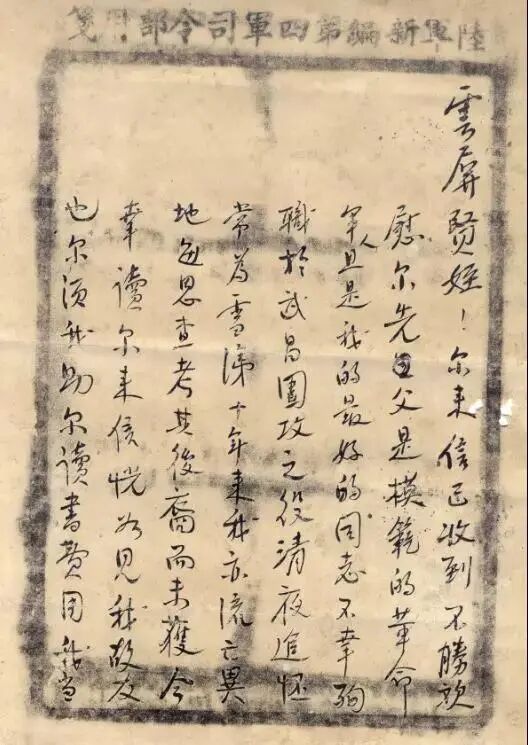 陸軍新編第四軍司令部用箋
雲屏賢姪！尔来信已收到不勝欣
慰尔先父是模範的革命
军人且是我的最好的同志不幸殉
職於武昌圍攻之役清夜追怀
常為雪涕十年来我亦流亡異
地每思查考其後裔而未獲今
幸讀尔来信恍如见我故友
也尔须我助尔读書费用我当